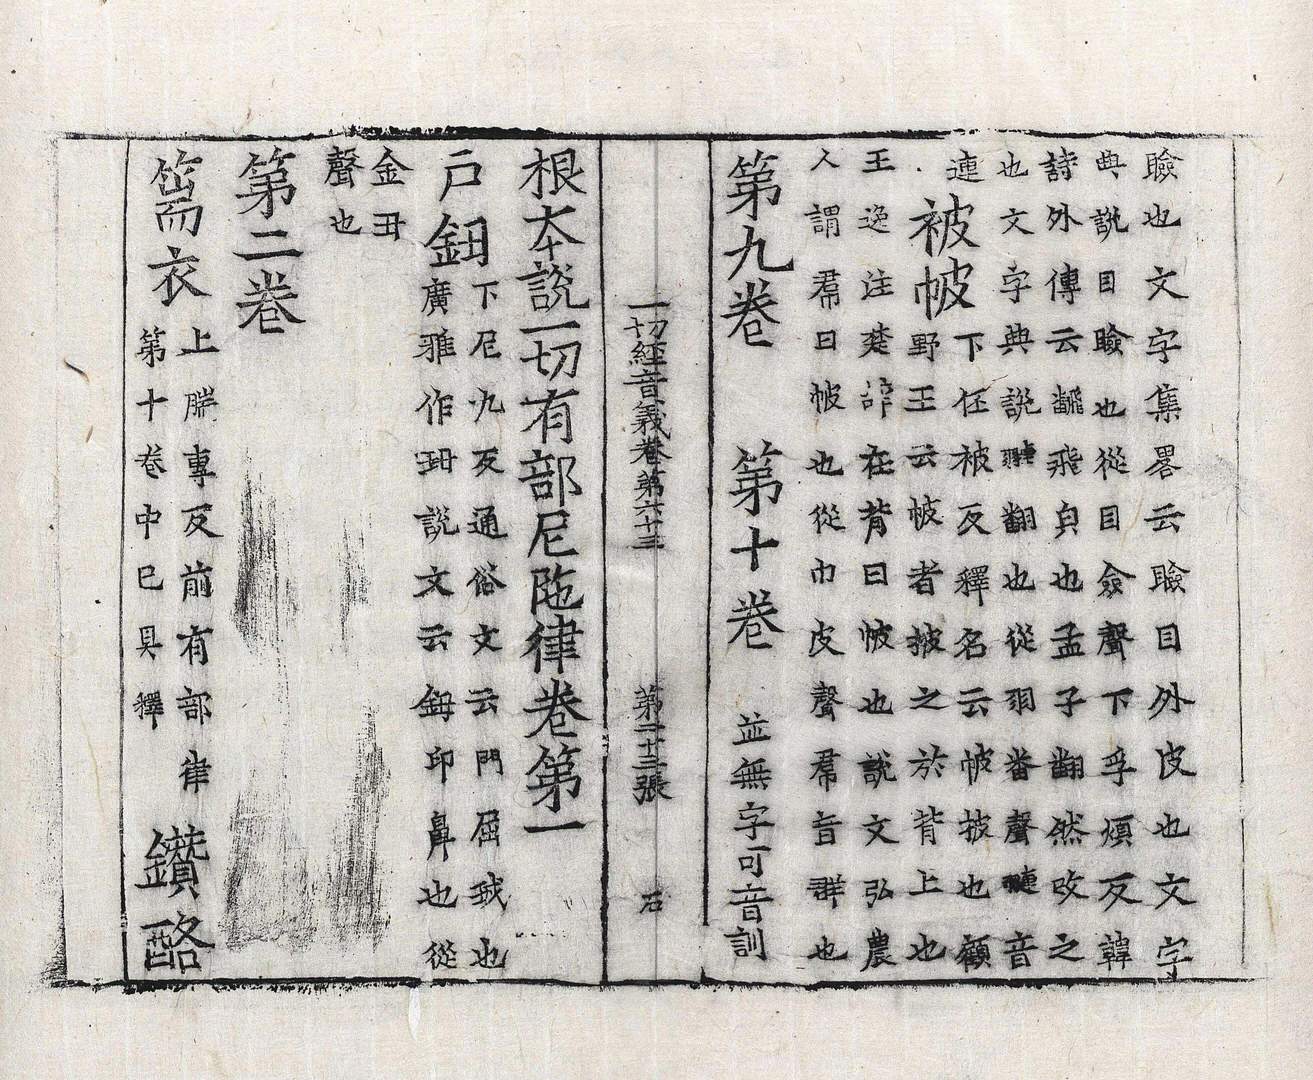 瞼也文字集畧云瞼目外皮也文字
典說目瞼也從目僉聲下孚煩反韓
詩外傳云翩飛皃也孟子翻然改之
也文字典說翻也從羽番聲音
連
被帔
下任被反釋名云帔披也顧
野王云帔者披之於背上也
王逸注楚辞在背曰帔也說文弘農
人謂帬曰帔也從巾皮聲帬音群也
第九卷 第十卷 並無字可音訓
一切經音義卷第六十三 第二十三張 石
根本說一切有部尼陁律卷第一
戶鈕
下尼九反通俗文云門屈戌也
廣雅作㺲說文云鈕印鼻也從
金丑
聲也
第二卷
篅衣
上腨專反前有部律
第十卷中已具釋
鑽酪